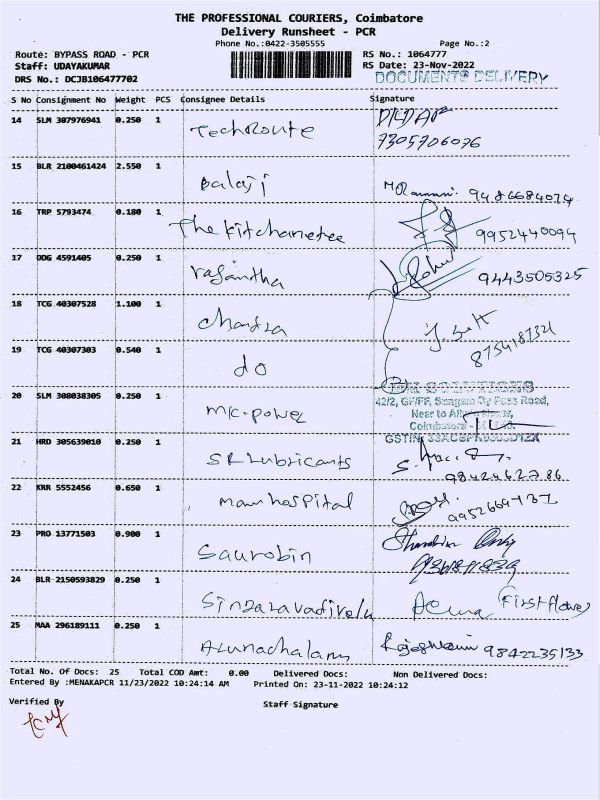 THE PROFESSIONAL COURIERS, Coimbatore
Delivery Runsheet - PCR
Phone No.:0422-3505555 Page No.:2
Route: BYPASS ROAD - PCR RS No.: 1064777
Staff: UDAYAKUMAR RS Date: 23-Nov-2022
DRS No.: DCJB106477702 DOCUMENTS DELIVERY
S No Consignment No Weight PCS Consignee Details Signature
14 SLM 307976941 0.250 1 TechRoute
7305706076
15 BLR 2100461424 2.550 1 Balaji 9486684074
16 TRP 5793474 0.180 1 The Kitchametee 9952440094
17 ODG 4591405 0.250 1 Vasantha 9443505325
18 TCG 40307528 1.100 1 Chandra
8754187321
19 TCG 40307303 0.540 1 do
20 SLM 308038305 0.250 1 M/c-power
42/2, GF/FF, Sungam By Pass Road,
Near to
Coimbatore -
GSTIN:
21 HRD 305639010 0.250 1 SR Lubricants
9842462786
22 KRR 5552456 0.650 1 hospital
9952669737
23 PRO 13771503 0.900 1 Saurobin
24 BLR 2150593829 0.250 1 Singaravadivelu First flower
25 MAA 296189111 0.250 1 Arunachalam Rajeshwari 9842235133
Total No. Of Docs: 25 Total COD Amt: 0.00 Delivered Docs: Non Delivered Docs:
Entered By :MENAKAPCR 11/23/2022 10:24:14 AM Printed On: 23-11-2022 10:24:12
Verified By Staff Signature